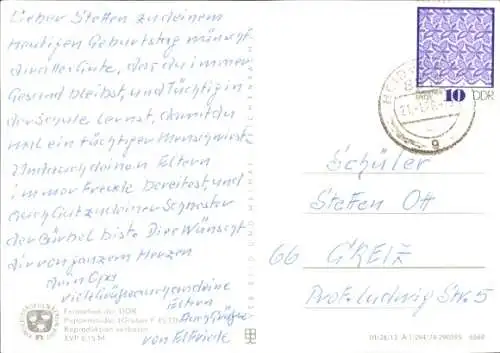 Lieber Steffen zu deinem
heutigen Geburtstag wünscht
dir alles Gute, das du immer
Gesund bleibst, und Tüchtig in
der Schule lernst, damit du
mal ein tüchtiger Mensch wirst
Und auch deinen Eltern
immer Freude bereitest, und
auch Gut zu deiner Schwester
der Bärbel bist. Dies Wünscht
dir von ganzem Herzen
dein Opa
viele Grüße auch an deine
Eltern
auch Grüße
von Elfriede
10 DDR
Schüler
Steffen Ott
66 GREIZ
Prof. Ludwig Str. 5
der DDR
Reproduktion verboten
EVP 0,15 M